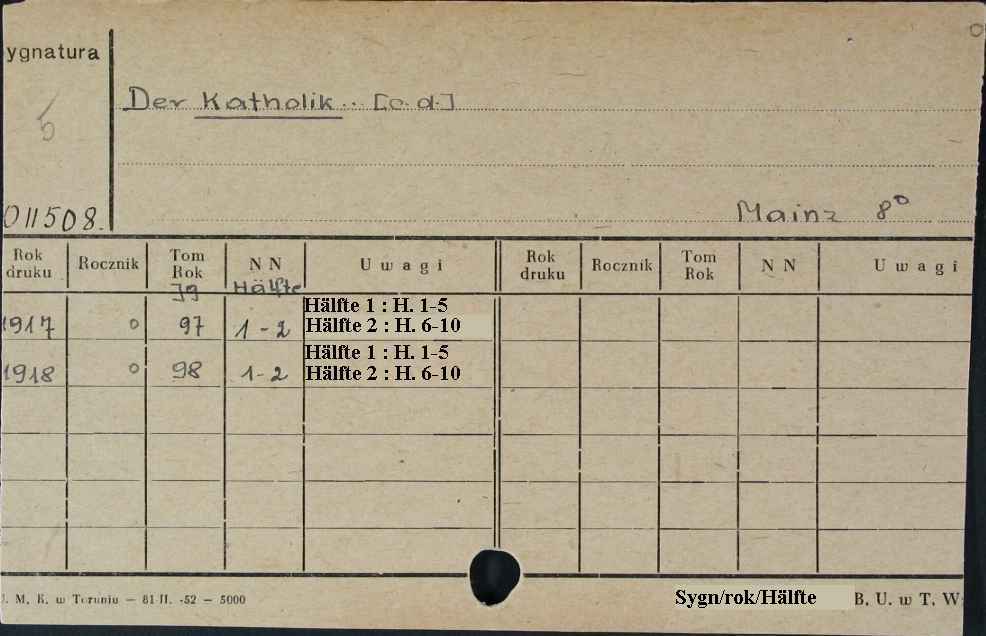 ygnatura
Der Katholik .. [c.d.]
011508.
Mainz 8°
Rok druku Rocznik Tom Rok N N Uwagi Rok druku Rocznik Tom Rok N N Uwagi
Jg Hälfte
1917 0 97 1-2 Hälfte 1 : H. 1-5
Hälfte 2 : H. 6-10
1918 0 98 1-2 Hälfte 1 : H. 1-5
Hälfte 2 : H. 6-10
. M. K. w Toruniu — 81 II. -52 — 5000
Sygn/rok/Hälfte B. U. w T. W